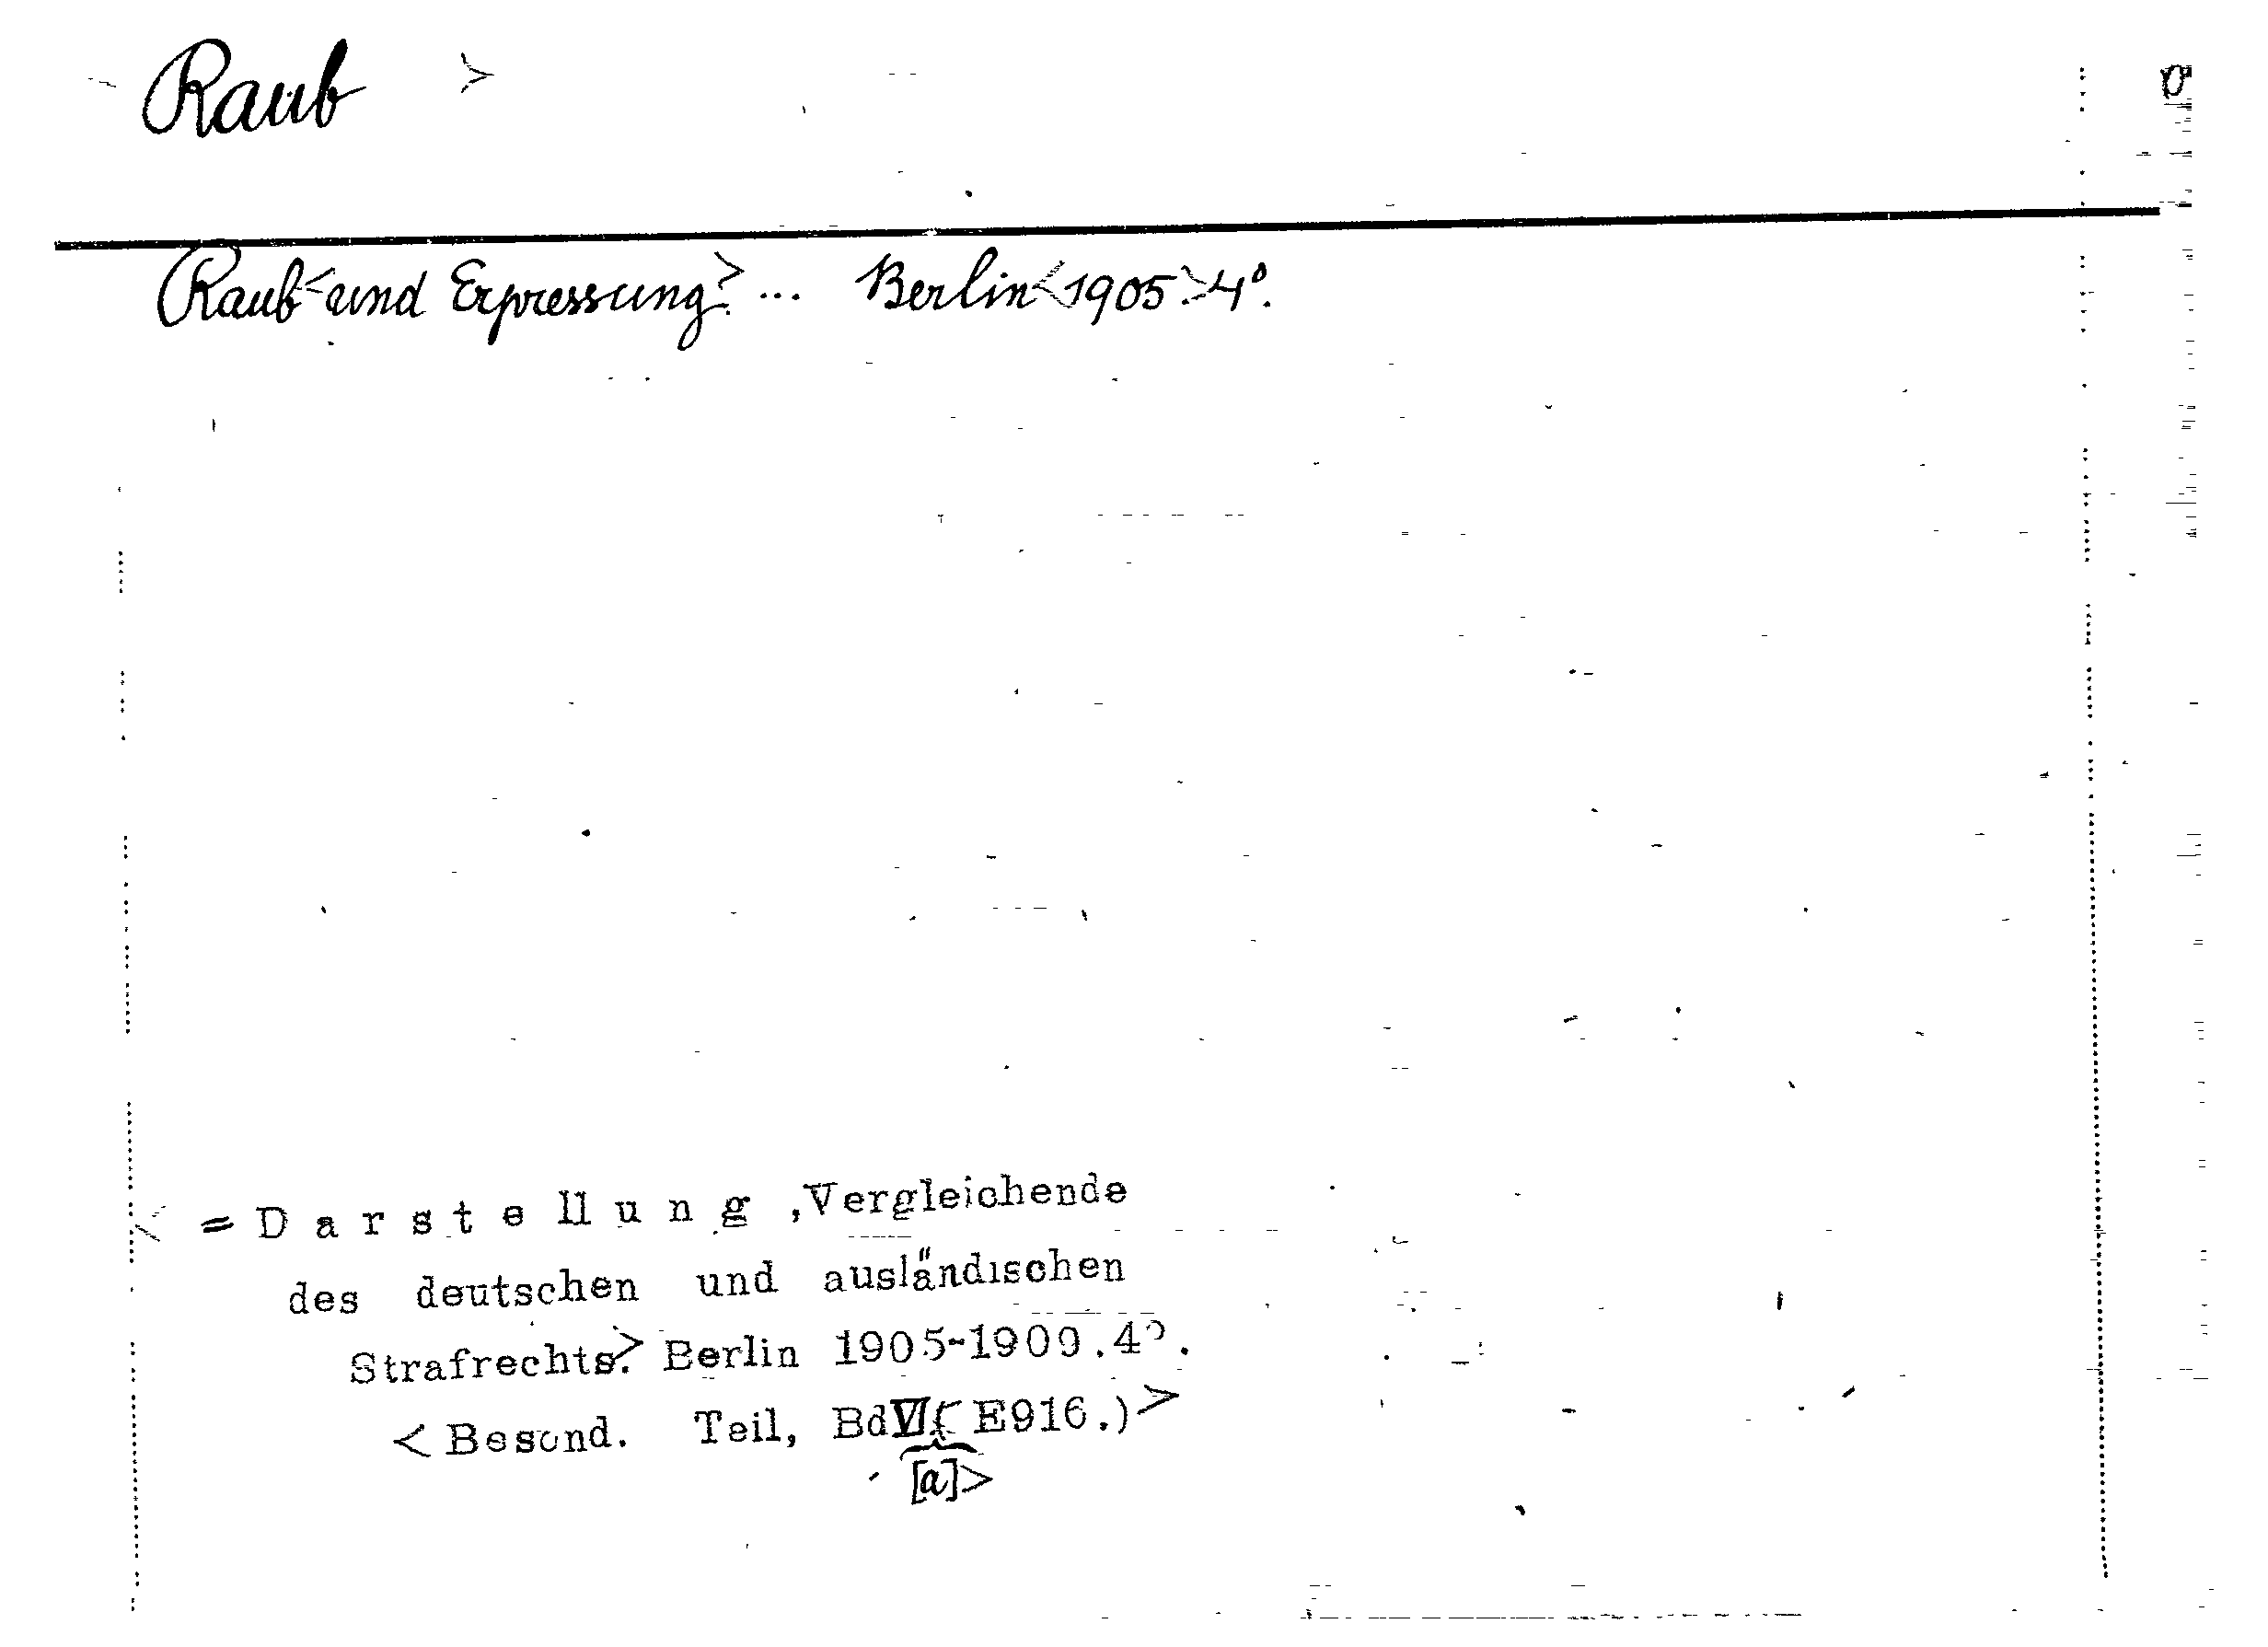 Raub >
Raub <und Erpressung>. ... Berlin <1905.> 4°.
< = D a r s t e l l u n g ,Vergleichende
des deutschen und ausländischen
Strafrechts.> Berlin 1905-1909.4°.
< Besond. Teil, Bd VI ( E916.) >
[a]>